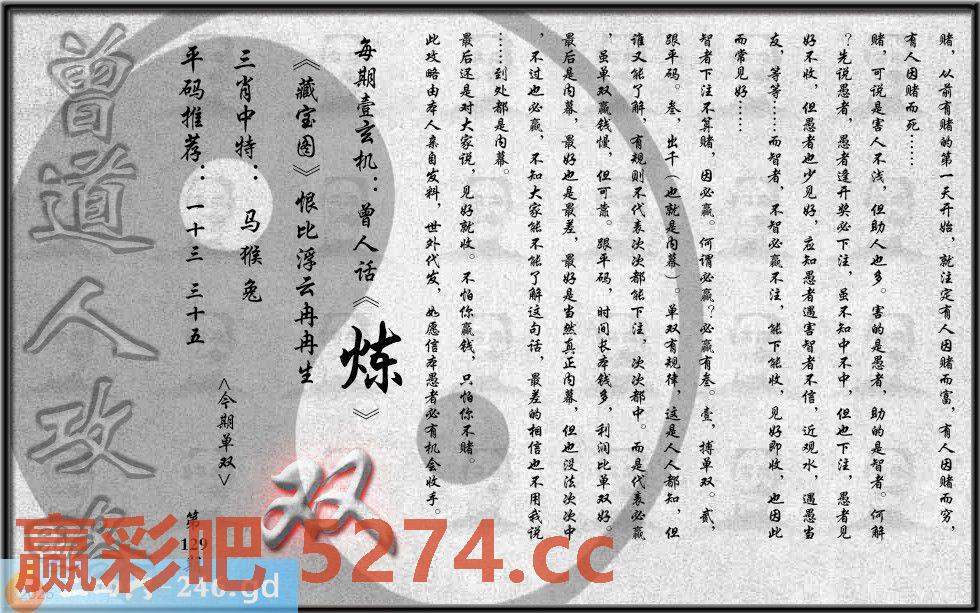 赌，从前有赌的第一天开始，就注定有人因赌而富，有人因赌而穷，
有人因赌而死……
赌，可说是害人不浅，但助人也多。害的是愚者，助的是智者。何解
？先说愚者，愚者逢开奖必下注，虽不知中不中，但也下注，愚者见
好不收，但愚者也少见好，应知愚者遇害智者不信，近观水，遇愚当
友，等等……而智者，不智必赢不注，能下能收，见好即收，也因此
而常见好……
智者下注不算赌，因必赢。何谓必赢？必赢有叁。壹，搏单双。贰，
跟平码。叁，出千（也就是内幕）。单双有规律，这是人人都知，但
谁又能了解，有规则不代表次次都能下注，次次都中。而是代表必赢
，虽单双赢钱慢，但可靠。跟平码，时间长本钱多，利润比单双好。
最后是内幕，最好也是最差，最好是当然真正内幕，但也没法次次中
，不过也必赢，不知大家能不能了解这句话，最差的相信也不用我说
……到处都是内幕。
最后还是对大家说，见好就收。不怕你赢钱，只怕你不赌。
此攻略由本人亲自发料，世外代发，如愿信本愚者必有机会收手。
每期壹玄机：曾人话《炼》
《藏宝图》恨比浮云冉冉生
三肖中特：马猴兔
平码推荐：一十三 三十五
<今期单双>
双
第129
曾道人攻
赢彩吧 5274.cc
-246.gd